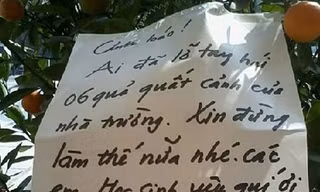 Cảnh báo!
Ai đã lỡ tay hái
06 quả quất cảnh của
nhà trường. Xin đừng
làm thế nữa nhé. các
em Học sinh yêu quí ơi